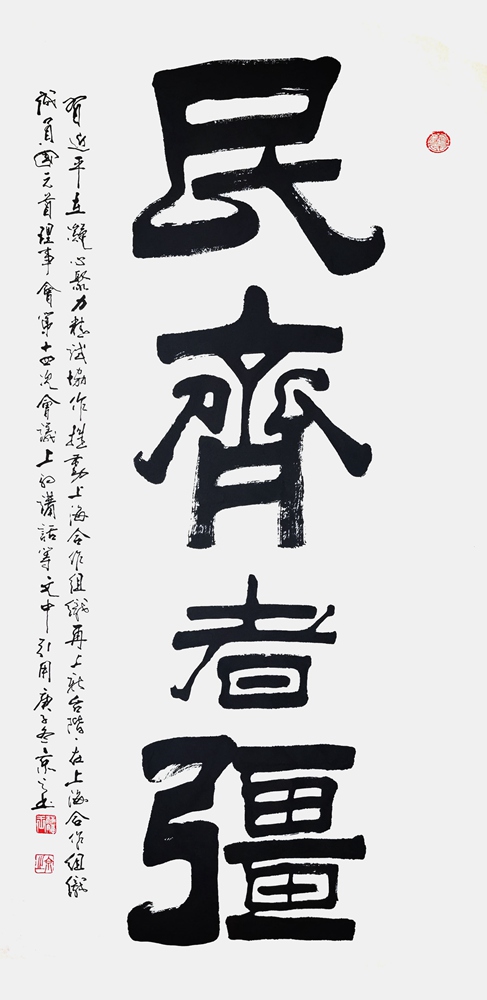 民齊者彊
習近平在凝心聚力精誠協作推動上海合作組織再上新台階·在上海合作組織
成員國元首理事會第十四次會議上的講話等文中引用庚子冬京之书